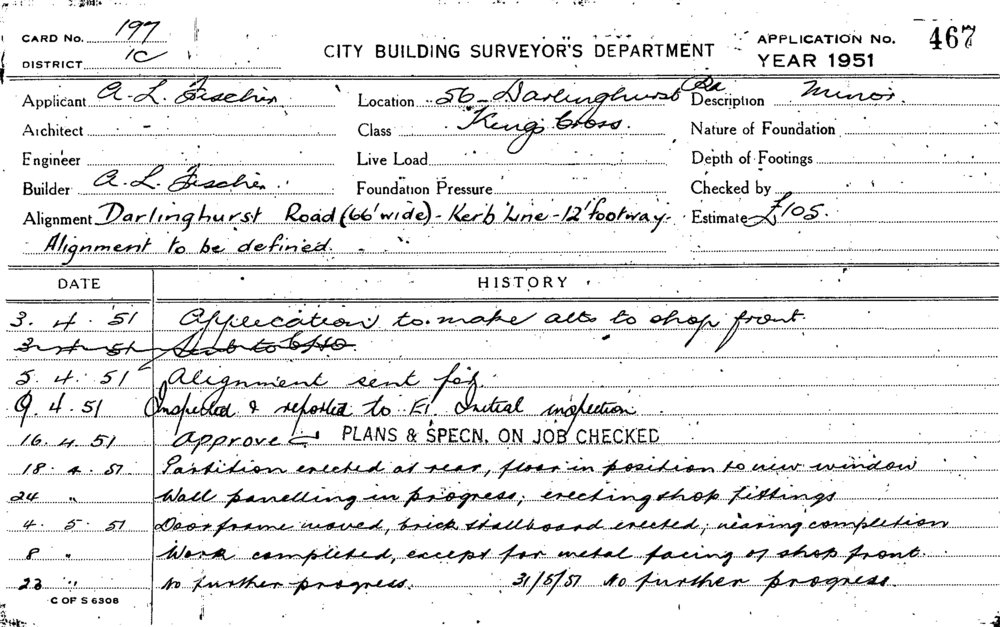 CARD No. 197
DISTRICT 1C
CITY BUILDING SURVEYOR'S DEPARTMENT
APPLICATION No. 467
YEAR 1951
Applicant A. L. Fischer Location 56 - Darlinghurst Rd Description Minor.
Architect - Class Kings Cross. Nature of Foundation
Engineer Live Load Depth of Footings
Builder A. L. Fischer. Foundation Pressure Checked by
Alignment Darlinghurst Road (66' wide) - Kerb Line - 12' footway - Estimate £105.
Alignment to be defined.
DATE HISTORY
3. 4. 51 Application to make alts to shop front.
3 4 51 Sent to CHO.
5. 4. 51 Alignment sent for.
9. 4. 51 Inspected & reported to E1. Initial inspection
16. 4. 51 Approve PLANS & SPECN. ON JOB CHECKED
18. 4. 51 Partition erected at rear, floor in position to new window
24 " Wall panelling in progress; erecting shop fittings
4. 5. 51 Door frame moved, brick stallboard erected; nearing completion
8 " Work completed, except for metal facing of shop front.
23 " No further progress. 31/5/51 No further progress.
C OF S 6308